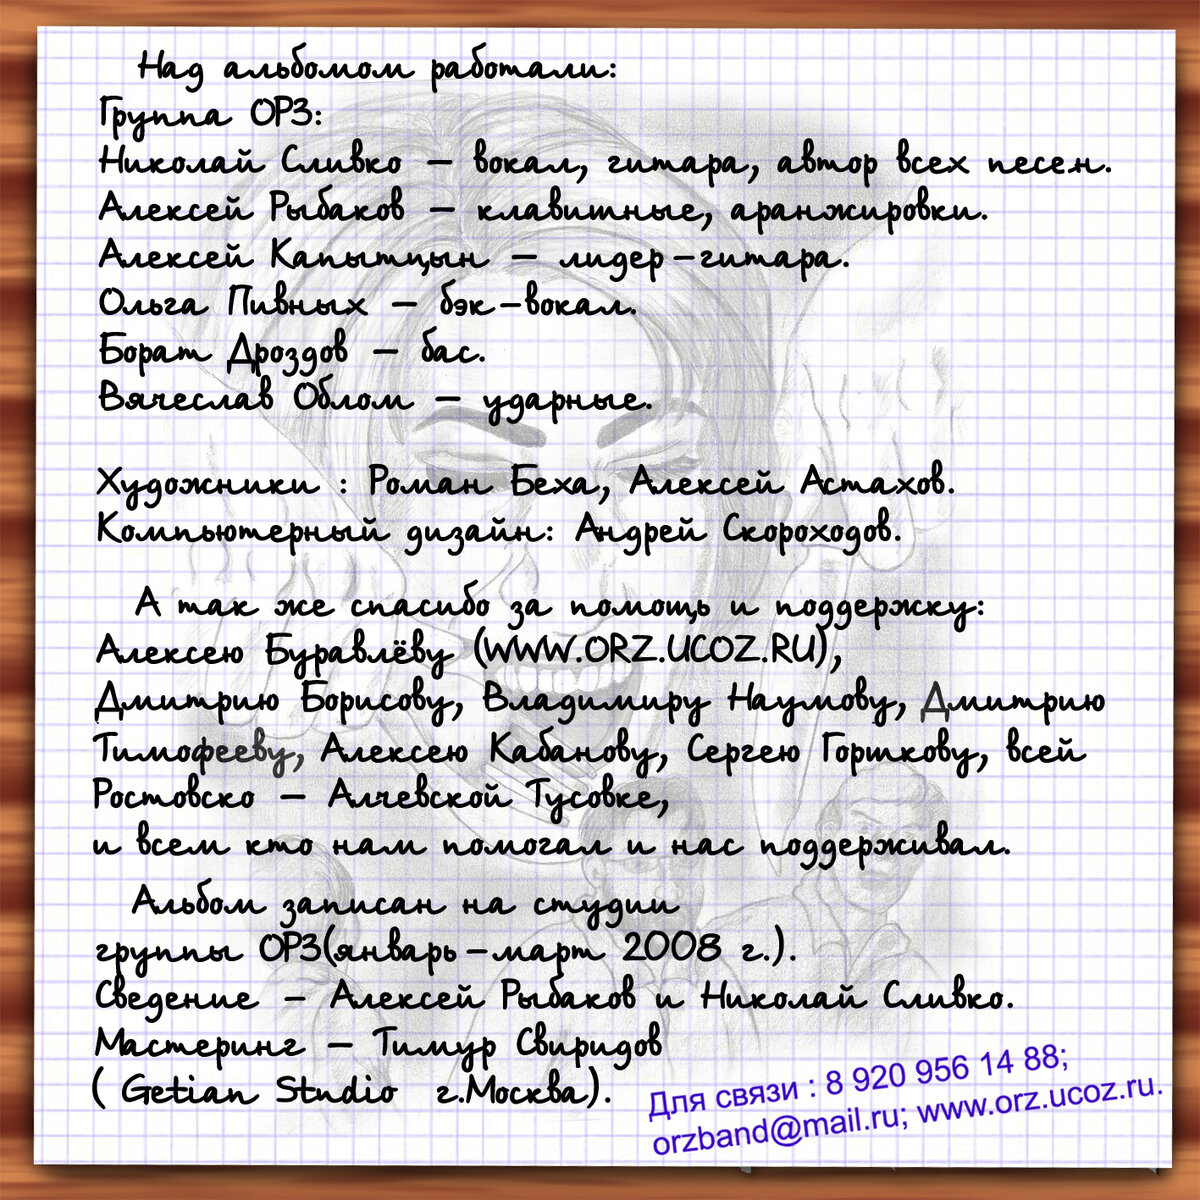 Над альбомом работали:
Группа ОРЗ:
Николай Сливко – вокал, гитара, автор всех песен.
Алексей Рыбаков – клавишные, аранжировки.
Алексей Капытцын – лидер-гитара.
Ольга Пивных – бэк-вокал.
Борат Дроздов – бас.
Вячеслав Облом – ударные.
Художники : Роман Беха, Алексей Астахов.
Компьютерный дизайн: Андрей Скороходов.
А так же спасибо за помощь и поддержку:
Алексею Буравлёву (WWW.ORZ.UCOZ.RU),
Дмитрию Борисову, Владимиру Наумову, Дмитрию
Тимофееву, Алексею Кабанову, Сергею Горшкову, всей
Ростовско – Алчевской Тусовке,
и всем кто нам помогал и нас поддерживал.
Альбом записан на студии
группы ОРЗ(январь-март 2008 г.).
Сведение – Алексей Рыбаков и Николай Сливко.
Мастеринг – Тимур Свиридов
( Getian Studio г.Москва).
Для связи : 8 920 956 14 88;
orzband@mail.ru; www.orz.ucoz.ru.